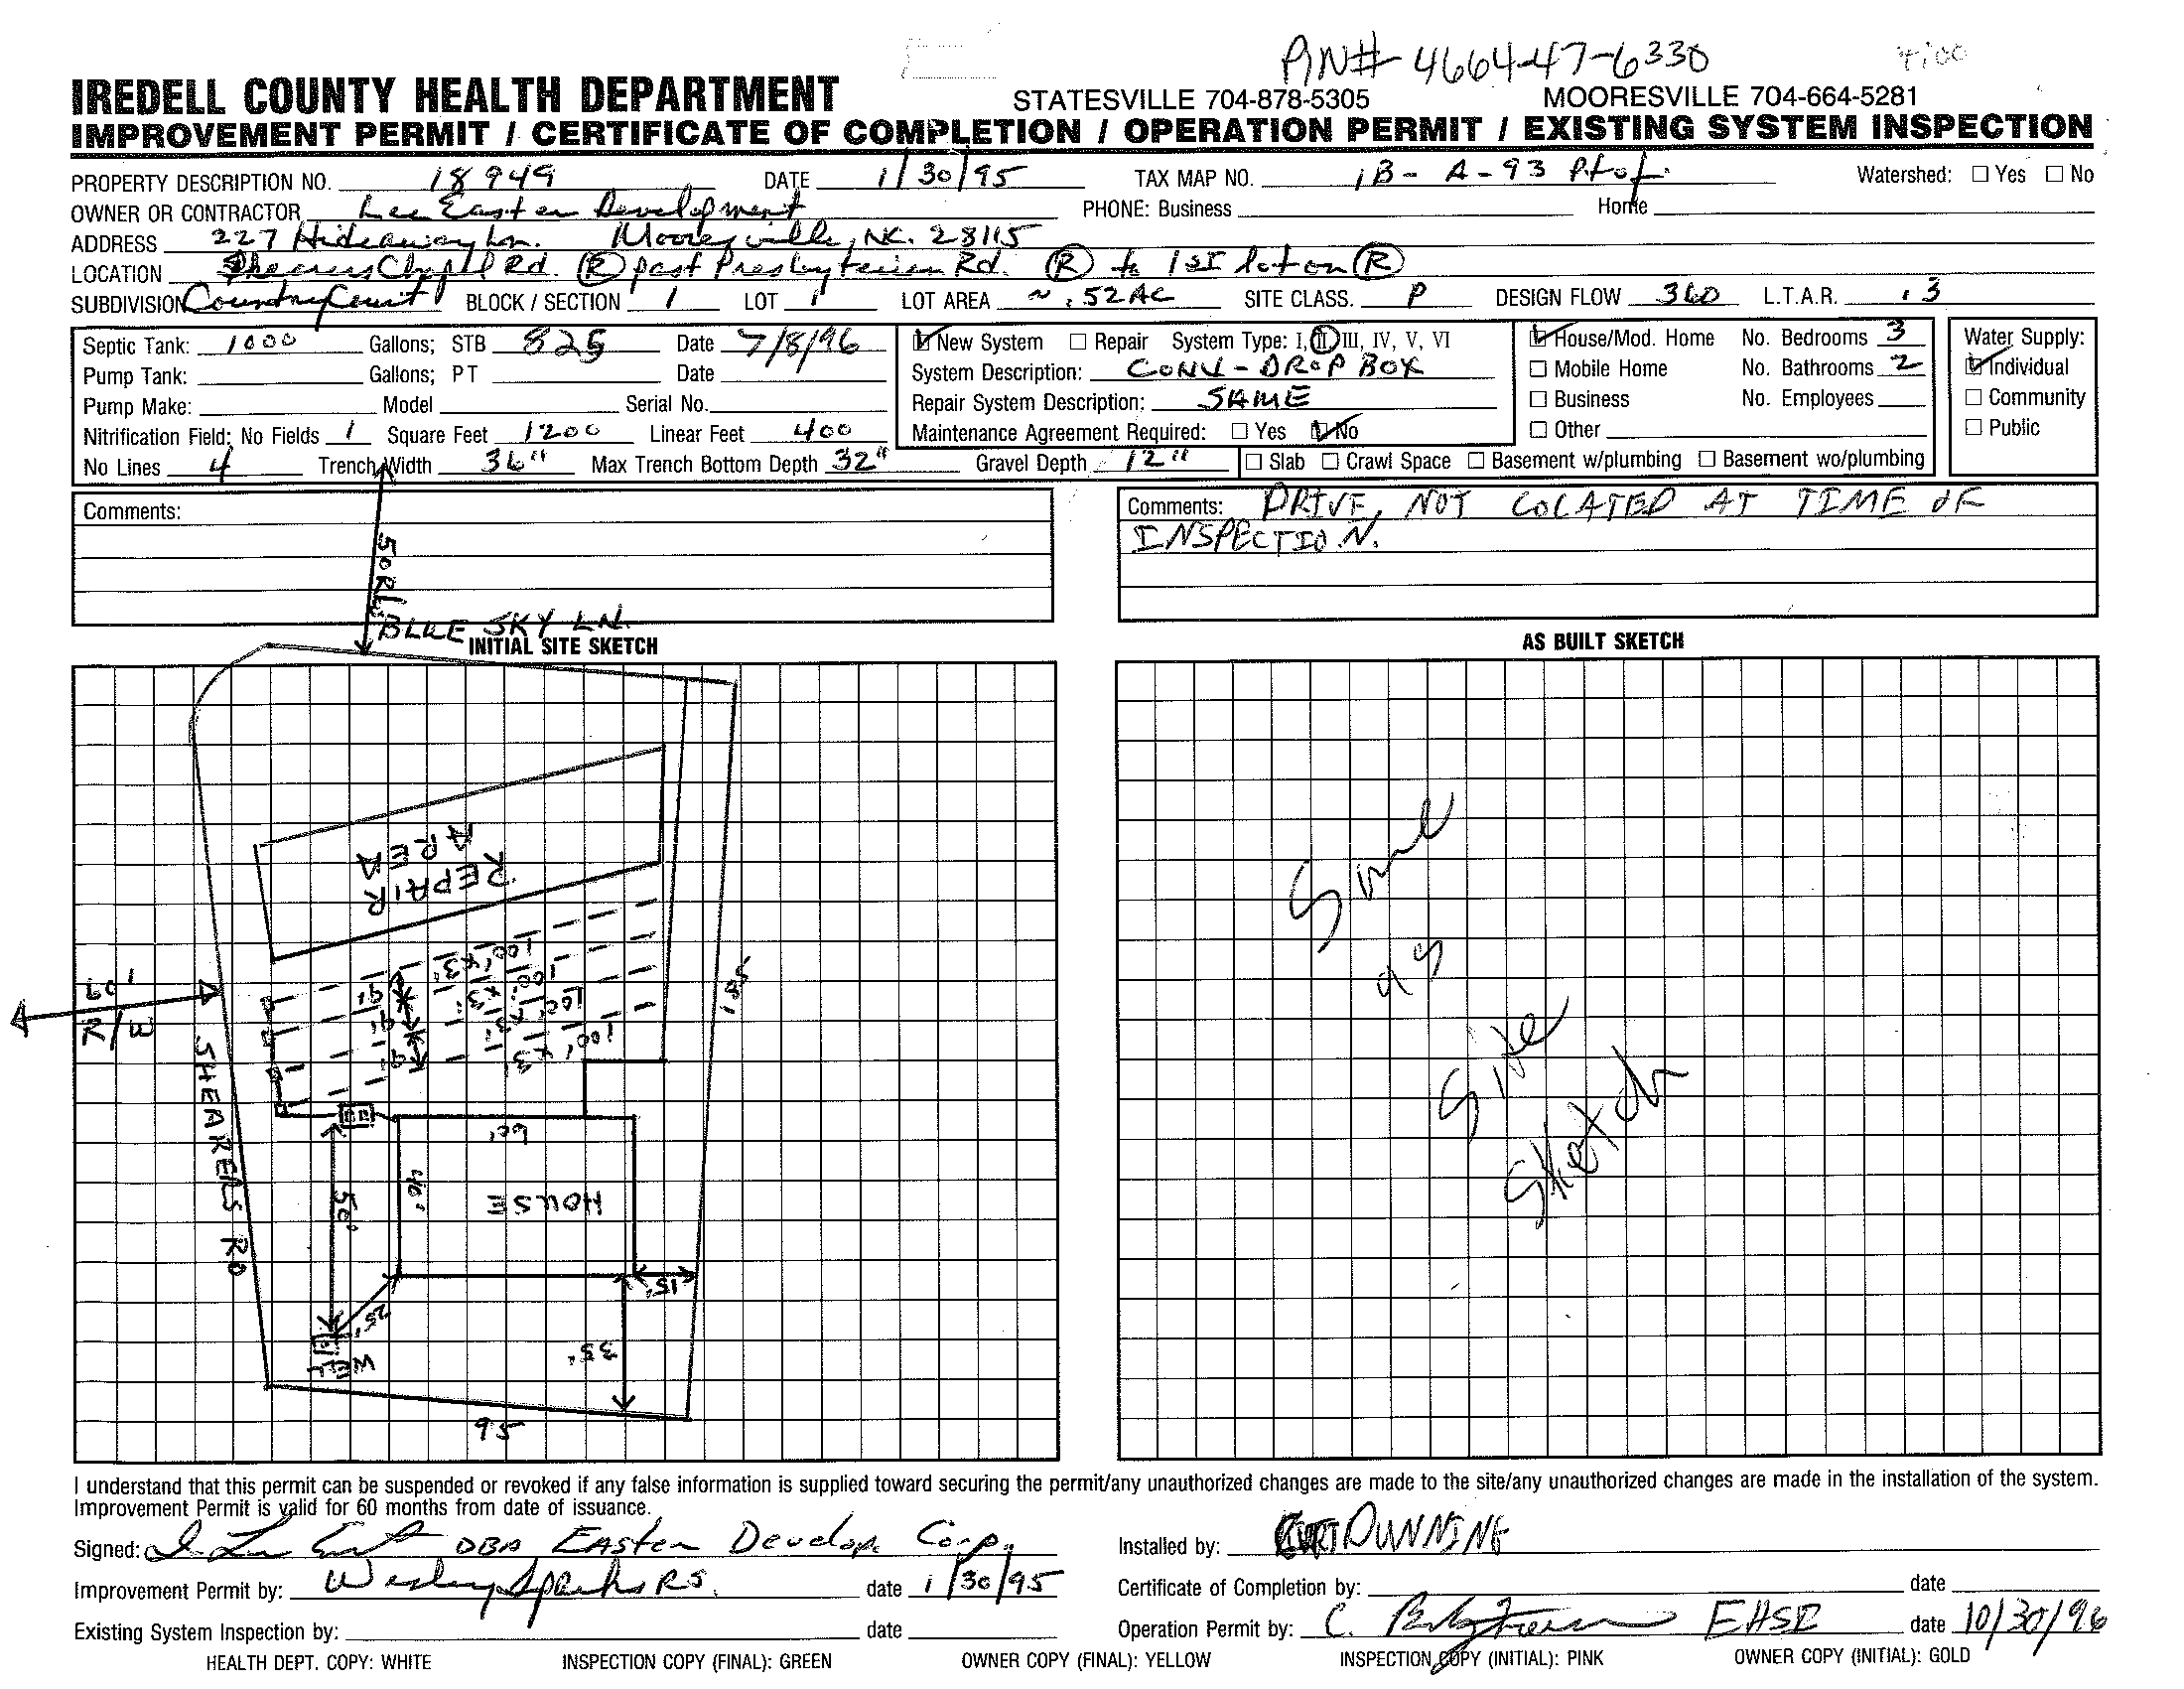 PIN# 4664-47-6330
IREDELL COUNTY HEALTH DEPARTMENT STATESVILLE 704-878-5305 MOORESVILLE 704-664-5281
IMPROVEMENT PERMIT / CERTIFICATE OF COMPLETION / OPERATION PERMIT / EXISTING SYSTEM INSPECTION
PROPERTY DESCRIPTION NO. 18949 DATE 1/30/95 TAX MAP NO. 1B-A-93 Pt of Watershed: ☐ Yes ☐ No
OWNER OR CONTRACTOR Lee Easter Development PHONE: Business Home
ADDRESS 227 Hideaway Ln. Mooresville, NC. 28115
LOCATION Shearers Chapel Rd. Ⓡ past Presbyterian Rd. Ⓡ to 1ST lot on Ⓡ
SUBDIVISION Country Court BLOCK / SECTION 1 LOT 1 LOT AREA ~.52AC SITE CLASS. P DESIGN FLOW 360 L.T.A.R. .3
Septic Tank: 1000 Gallons; STB 825 Date 7/8/96 ☑ New System ☐ Repair System Type: I, II, III, IV, V, VI ☑ House/Mod. Home No. Bedrooms 3 Water Supply:
Pump Tank: Gallons; PT Date System Description: CONV-DROP BOX ☐ Mobile Home No. Bathrooms 2 ☑ Individual
Pump Make: Model Serial No. Repair System Description: SAME ☐ Business No. Employees ☐ Community
Nitrification Field: No Fields 1 Square Feet 1200 Linear Feet 400 Maintenance Agreement Required: ☐ Yes ☑ No ☐ Other ☐ Public
No Lines 4 Trench Width 36" Max Trench Bottom Depth 32" Gravel Depth 12" ☐ Slab ☐ Crawl Space ☐ Basement w/plumbing ☐ Basement wo/plumbing
Comments:
Comments: DRIVE, NOT LOCATED AT TIME OF
INSPECTION.
BLUE SKY LN.
INITIAL SITE SKETCH
AS BUILT SKETCH
REPAIR
AREA
100' x 3'
100' x 3'
100' x 3'
100' x 3'
9'
9'
9'
60'
R/W
SHEARERS RD
60'
40'
HOUSE
50'
25'
WELL
15'
35'
95
Same
as
Site
Sketch
I understand that this permit can be suspended or revoked if any false information is supplied toward securing the permit/any unauthorized changes are made to the site/any unauthorized changes are made in the installation of the system.
Improvement Permit is valid for 60 months from date of issuance.
Signed: DBA Easter Develop. Corp.
Installed by: DUNNING
Improvement Permit by: Wesley Sparks RS. date 1/30/95
Certificate of Completion by: date
Existing System Inspection by: date
Operation Permit by: C. date 10/30/96
HEALTH DEPT. COPY: WHITE INSPECTION COPY (FINAL): GREEN OWNER COPY (FINAL): YELLOW INSPECTION COPY (INITIAL): PINK OWNER COPY (INITIAL): GOLD